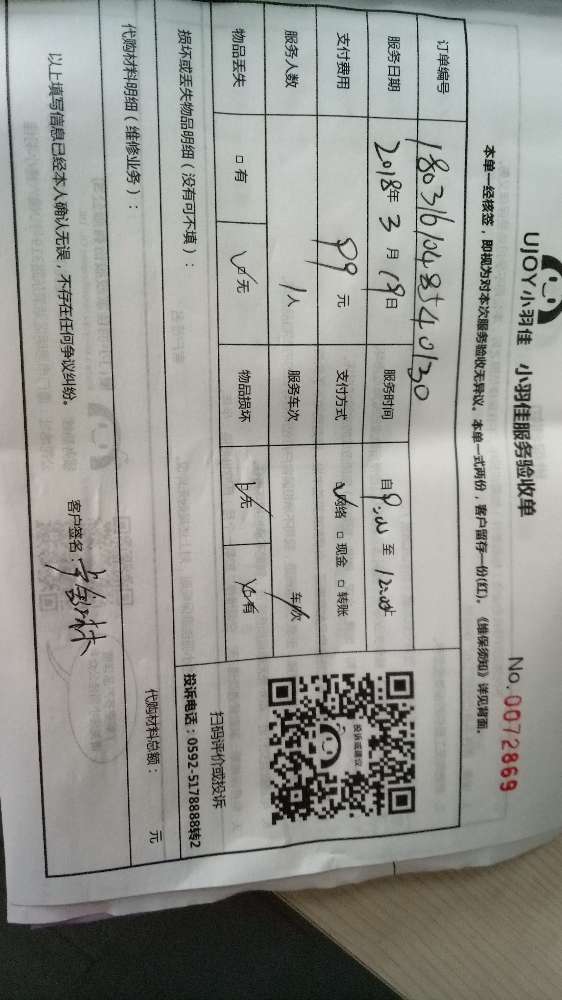 UJOY小羽佳 小羽佳服务验收单
No. 0072869
本单一经核签，即视为对本次服务验收无异议。本单一式两份，客户留存一份(红)。《维保须知》详见背面。
订单编号 1803161048540130
服务日期 2018年 3 月 19日 服务时间 自 9:00 至 12:00
支付费用 99 元 支付方式 ☑网络 □ 现金 □ 转账
服务人数 1 人 服务车次 车/次
物品丢失 □ 有 ☑无 物品损坏 ☑无 □有
损坏或丢失物品明细（没有可不填）：
投诉或建议
扫码评价或投诉
投诉电话：0592-5178888转2
代购材料明细（维修业务）：
代购材料总额： 元
以上填写信息已经本人确认无误，不存在任何争议纠纷。
客户签名：